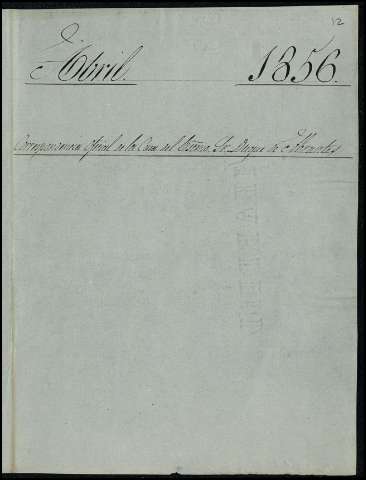 12
Abril. 1856.
Correspondencia oficial de la Casa del Excmo. Sr. Duque de Abrantes